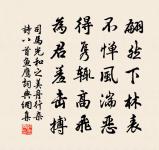 翩然下林表
不憚風湍惡
得雋輒高飛
為君羞擊搏
司馬光和之美舟行雜
詩八首魚鷹詞典網集